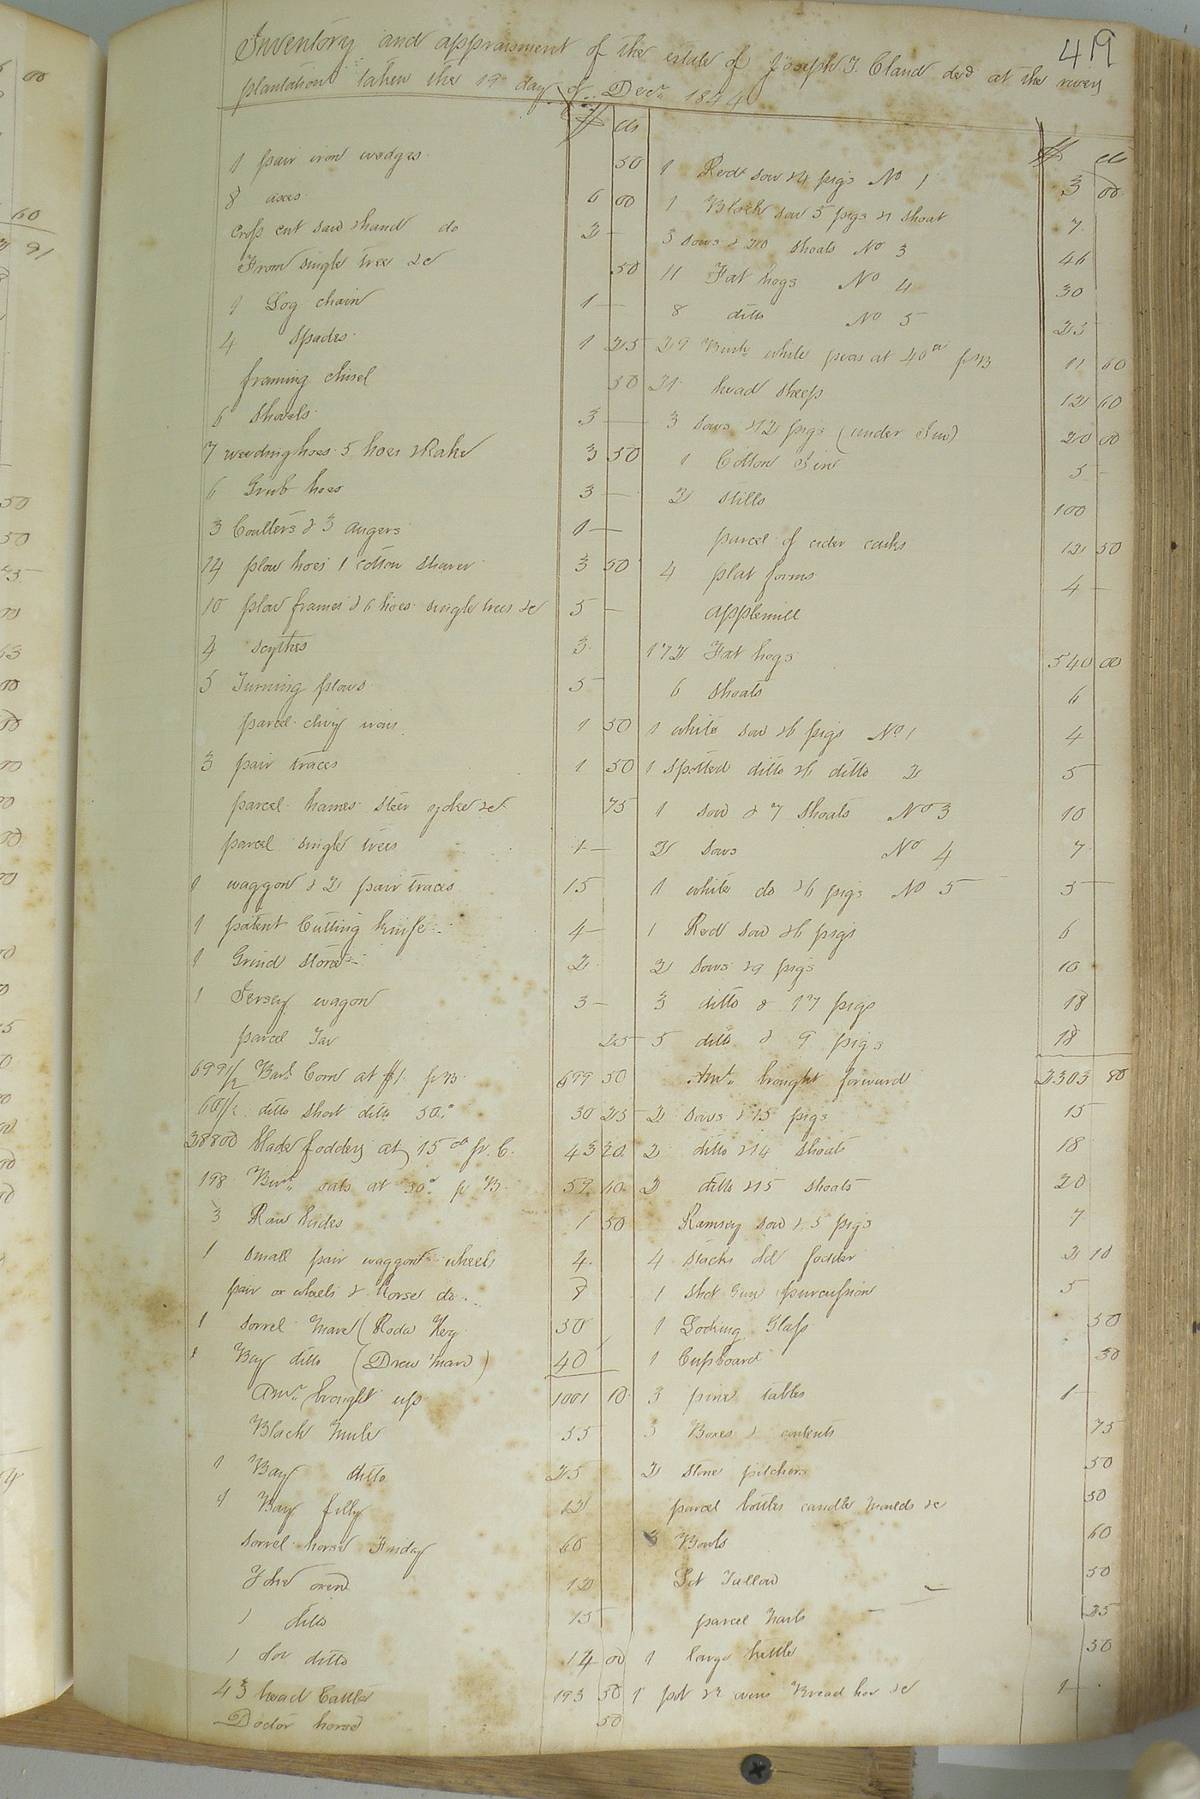 49
Inventory and appraisment of the estate of Joseph J. Cland decd at the river
plantation taken the 19th day of Decr 1844
$ cts
1 pair iron wedges 50
8 axes 6 00
cross cut saw & hand do 2 —
Iron single tree &c 50
1 Log chain 1 —
4 Spades 1 25
framing chisel 50
6 Shovels 3 —
7 weeding hoes 5 hoes & Rake 3 50
6 Grub hoes 3 —
3 Coulters & 3 augers 1 —
14 plow hoes 1 cotton shaver 3 50
10 plow frames & 6 hoes single trees &c 5 —
4 scythes 3
5 Turning plows 5
parcel clivy irons 1 50
3 pair traces 1 50
parcel hames steer yokes &c 75
parcel single trees 1 —
1 waggon & 2 pair traces 15
1 patent Cutting knife 4 —
1 Grind stone 2
1 Jersey wagon 3 —
parcel Tar 25
699 1/2 Barls Corn at $1 pr B 699 50
60 1/2 ditto short ditto 50c 30 25
28800 blade fodder at 15 cts pr C. 43 20
198 Bus oats at 30c pr B 59 40
3 Raw hides 1 50
1 small pair waggon wheels 4
pair ox wheels & horse do 8
1 sorrel mare (Roda Key 30
1 Bay ditto (Drew mare) 40
Amt brought up 1001 10
Black mule 55
1 Bay ditto 25
1 Bay filly 12
sorrel horse Friday 60
Yoke oxen 12
1 ditto 15
1 do ditto 14 00
43 head Cattle 193 50
Doctor horse 50
$ cts
1 Red sow & 4 pigs No 1 3 00
1 Black sow 5 pigs & 1 shoat 7
3 sows & 20 shoats No 3 46
11 Fat hogs No 4 30
8 ditto No 5 23
29 Bush white peas at 40 cts pr B 11 60
21 head sheep 12 60
3 sows & 12 pigs (under Gin) 20 00
1 Cotton Gin 5 —
2 stills 100
parcel of cider casks 12 50
4 plat forms 4 —
applemill
172 Fat hogs 540 00
6 shoats 6
1 white sow & 6 pigs No 1 4
1 Spotted ditto & 6 ditto 2 5
1 sow & 7 shoats No 3 10
2 sows No 4 7
1 white do & 6 pigs No 5 5
1 Red sow & 6 pigs 6
2 sows & 9 pigs 10
3 ditto & 17 pigs 18
5 ditto & 9 pigs 18
Amt brought forward 2303 80
2 sows & 15 pigs 15
2 ditto & 14 shoats 18
2 ditto & 15 shoats 20
Ramsey sow & 5 pigs 7
4 stacks old fodder 2 10
1 shot Gun percussion 5
1 Looking Glass 50
1 Cupboard 50
3 pine tables 1 —
3 Boxes & contents 75
2 stone pitchers 50
parcel bottles candle moulds &c 50
3 Bowls 60
Lot Tallow 50
parcel 25
1 large kettle 50
1 pot & 2 ovens Bread hoe &c 1 —